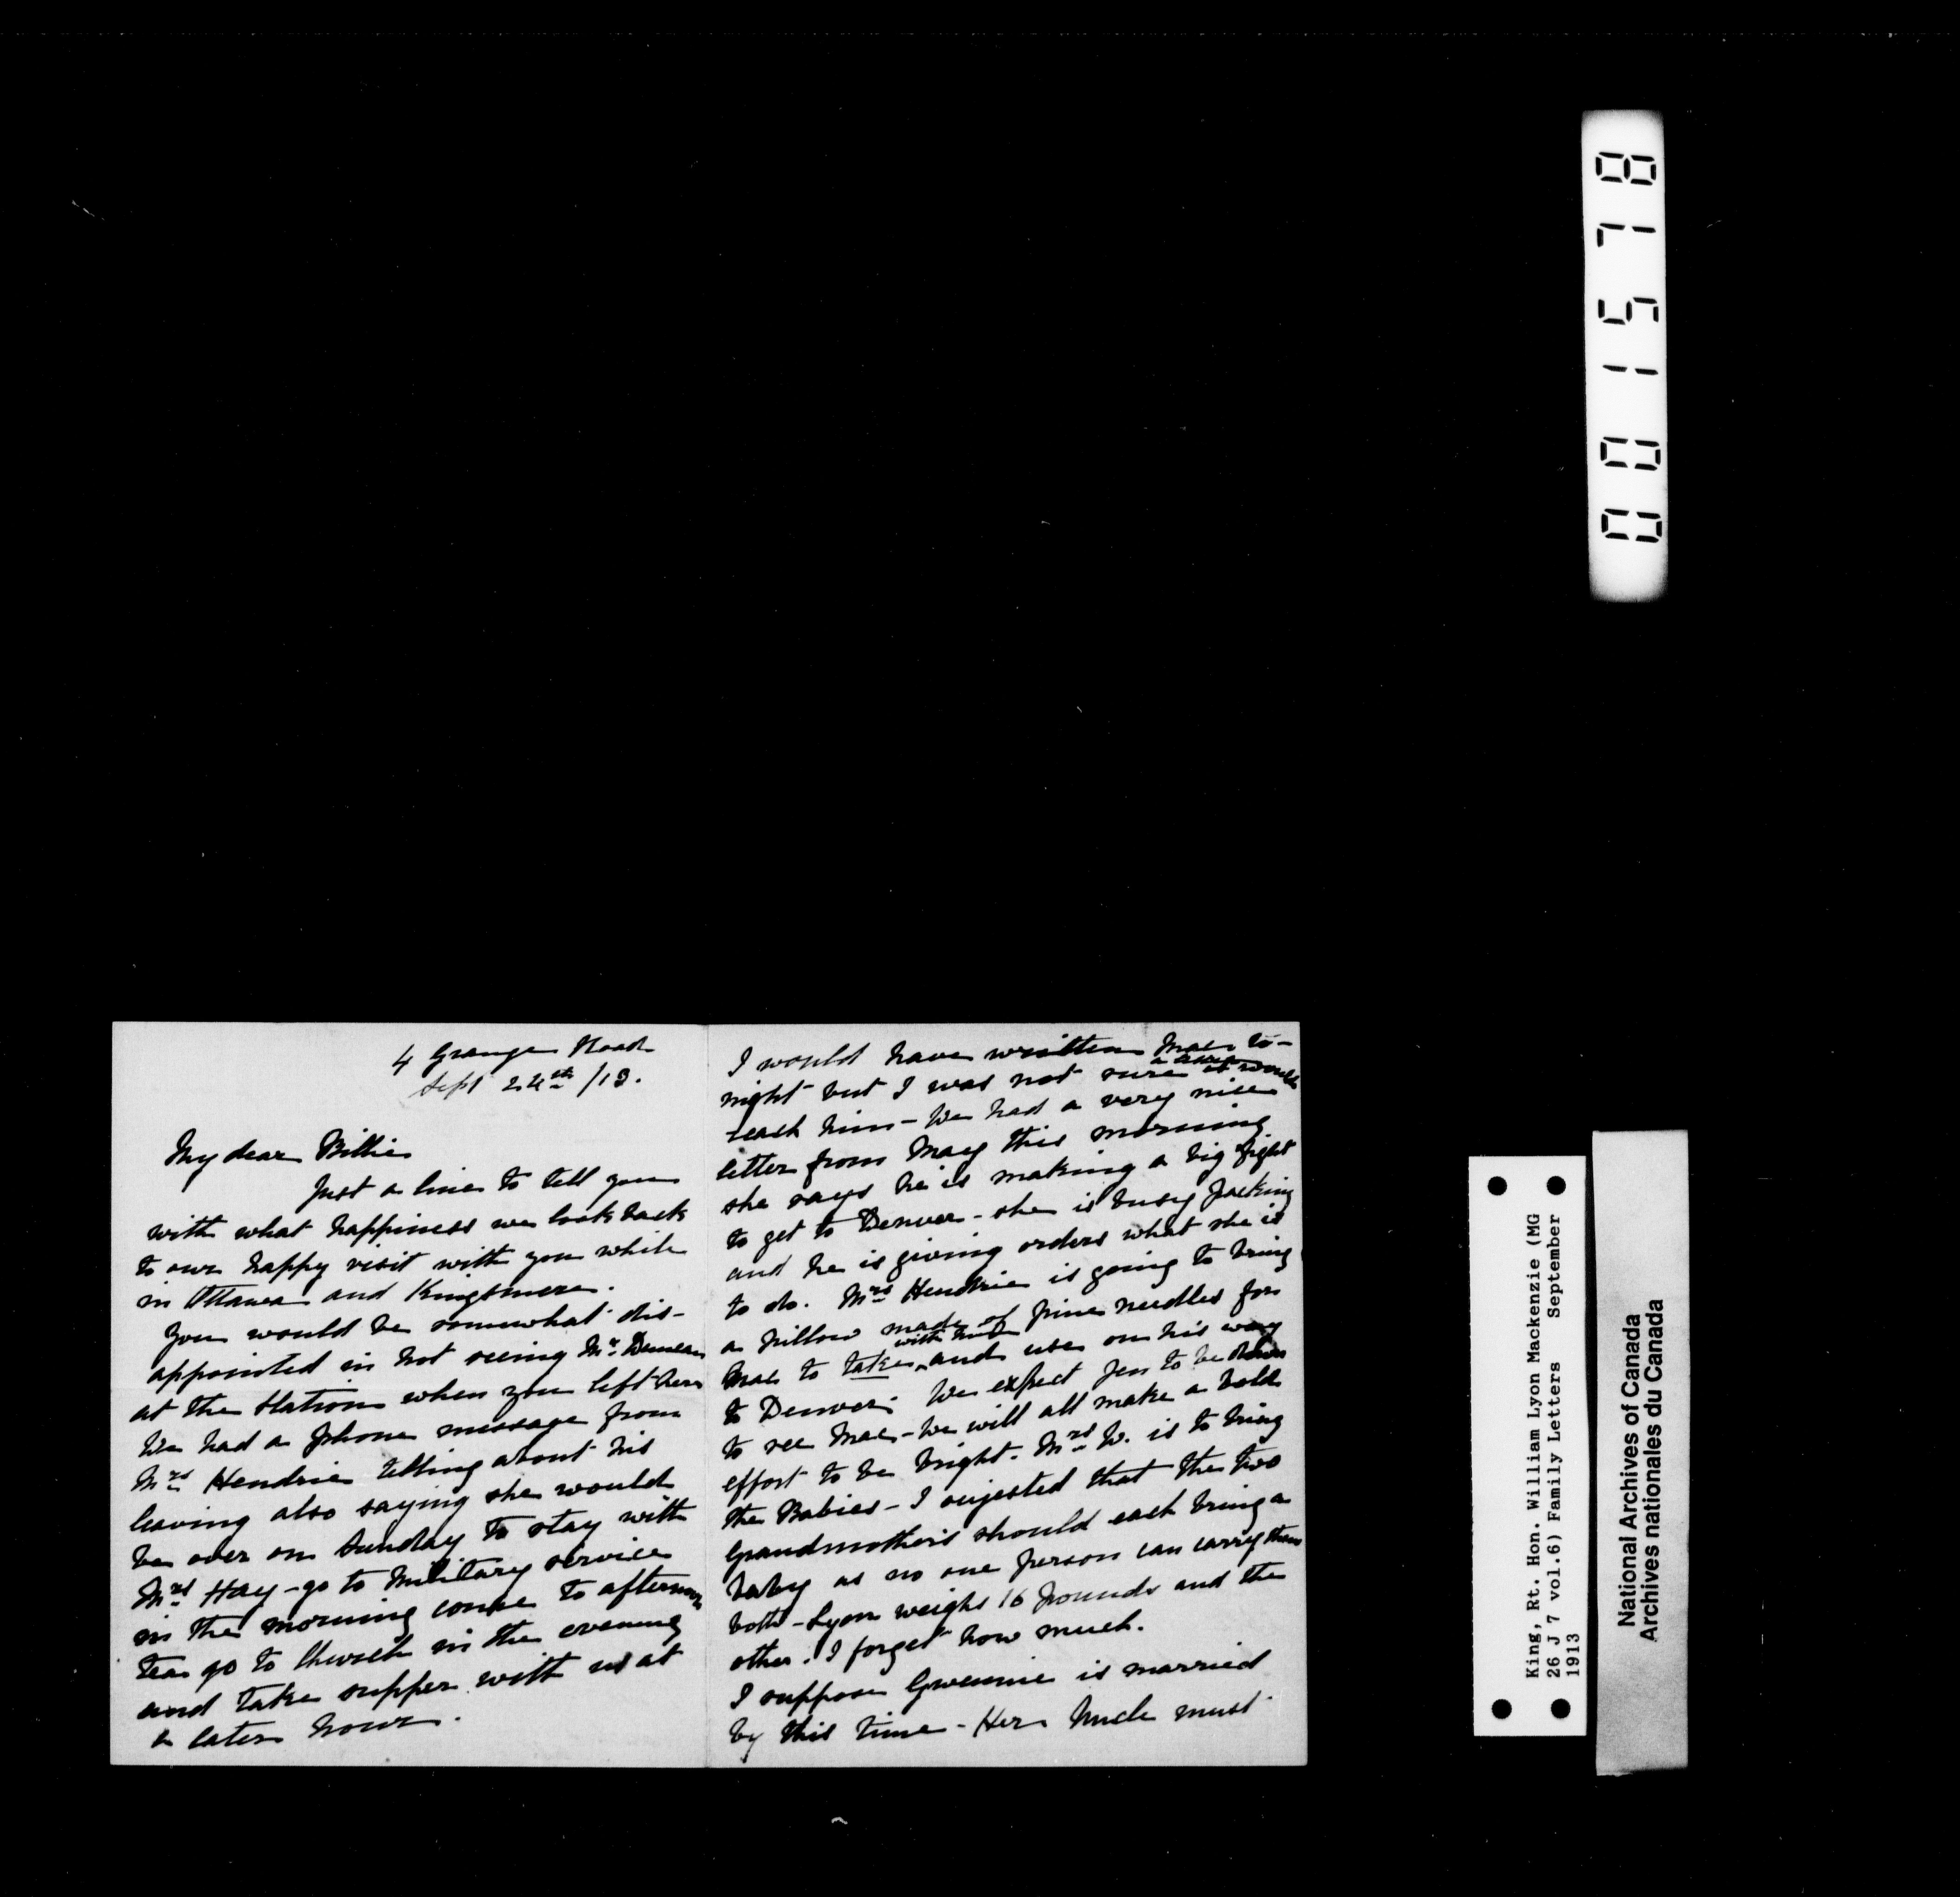 4 Grange Road
Sept 24th /13.
My dear Billie
Just a line to tell you
with what happiness we look back
to our happy visit with you while
in Ottawa and Kingsmere.
You would be somewhat dis-
appointed in not seeing Mr.
at the Station when you left here
We had a phone message from
Mrs Hendrie telling about his
leaving also saying she would
be over on Sunday to stay with
Mrs Hay - go to Military service
in the morning come to afternoon
tea go to Church in the evening
and take supper with us at
a later hour.
I would have written Mac to-
night but I was not sure it would
reach him - We had a very nice
letter from May this morning
she says he is making a big fight
to get to Denver - she is busy packing
and he is giving orders what she is
to do. Mrs Hendrie is going to bring
a pillow made of pine needles for
Mac to take with him and use on his way
to Denver. We expect Jen to be down
to see Mac - We will all make a bold
effort to be bright. Mrs W. is to bring
the Babies - I sujested that the two
Grandmothers should each bring a
baby as no one person can carry them
both - Lyon weighs 16 pounds and the
other. I forget how much.
I suppose Gwennie is married
by this time - Her Uncle must
001578
King, Rt. Hon. William Lyon Mackenzie (MG
26 J 7 vol.6) Family Letters September
1913
National Archives of Canada
Archives nationales du Canada